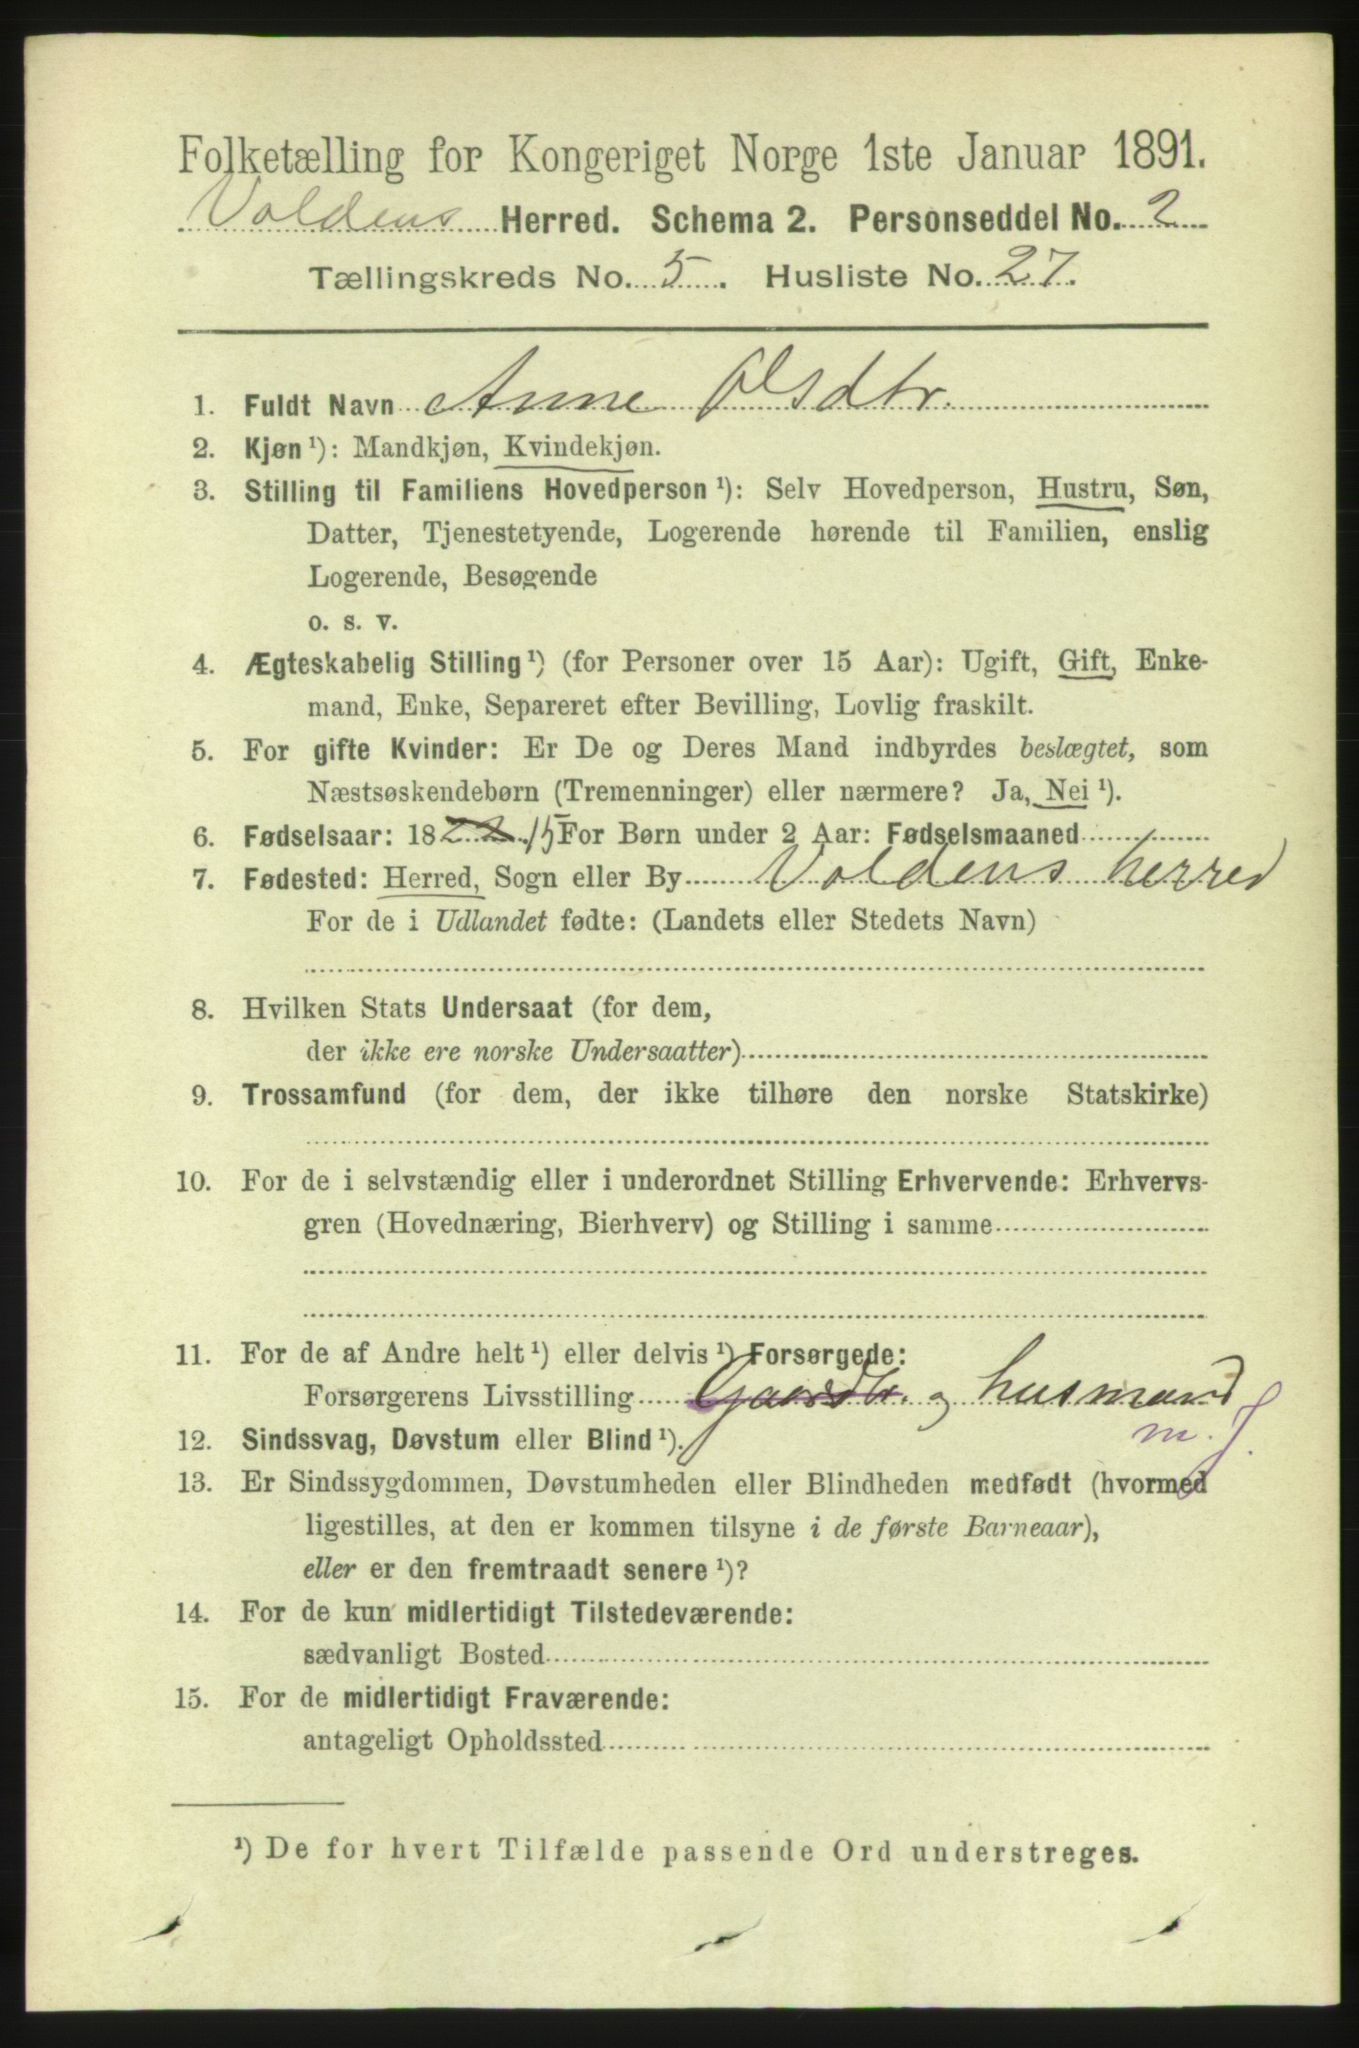 Folketælling for Kongeriget Norge 1ste Januar 1891.
Voldens Herred. Schema 2. Personseddel No. 2
Tællingskreds No. 5. Husliste No. 27.
1. Fuldt Navn Anne Olsdtr.
2. Kjøn ¹): Mandkjøn, Kvindekjøn.
3. Stilling til Familiens Hovedperson ¹): Selv Hovedperson, Hustru, Søn,
Datter, Tjenestetyende, Logerende hørende til Familien, enslig
Logerende, Besøgende
o. s. v.
4. Ægteskabelig Stilling ¹) (for Personer over 15 Aar): Ugift, Gift, Enke-
mand, Enke, Separeret efter Bevilling, Lovlig fraskilt.
5. For gifte Kvinder: Er De og Deres Mand indbyrdes beslægtet, som
Næstsøskendebørn (Tremenninger) eller nærmere? Ja, Nei ¹).
6. Fødselsaar: 1822 15 For Børn under 2 Aar: Fødselsmaaned
7. Fødested: Herred, Sogn eller By Voldens herred
For de i Udlandet fødte: (Landets eller Stedets Navn)
8. Hvilken Stats Undersaat (for dem,
der ikke ere norske Undersaatter)
9. Trossamfund (for dem, der ikke tilhøre den norske Statskirke)
10. For de i selvstændig eller i underordnet Stilling Erhvervende: Erhvervs-
gren (Hovednæring, Bierhverv) og Stilling i samme
11. For de af Andre helt ¹) eller delvis ¹) Forsørgede:
Forsørgerens Livsstilling Gaardbr. og husmand
m. J.
12. Sindssvag, Døvstum eller Blind ¹).
13. Er Sindssygdommen, Døvstumheden eller Blindheden medfødt (hvormed
ligestilles, at den er kommen tilsyne i de første Barneaar),
eller er den fremtraadt senere ¹)?
14. For de kun midlertidigt Tilstedeværende:
sædvanligt Bosted
15. For de midlertidigt Fraværende:
antageligt Opholdssted
¹) De for hvert Tilfælde passende Ord understreges.